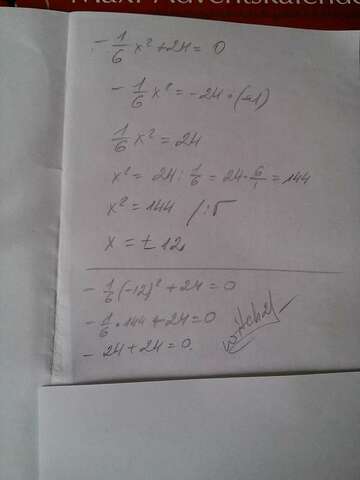 Maxi Adventskalende
- 1/6 x² + 24 = 0
- 1/6 x² = -24 · (-1)
1/6 x² = 24
x² = 24 : 1/6 = 24 · 6/1 = 144
x² = 144 / :√
x = ± 12
- 1/6 (-12)² + 24 = 0
- 1/6 · 144 + 24 = 0
- 24 + 24 = 0